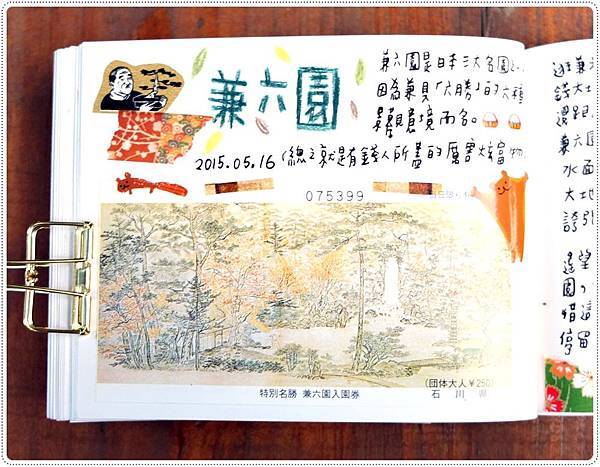 兼六園
兼六園是日本三大名園之一
因為兼具「六勝」的六種
景觀意境而名。
2015.05.16 (總之就是有錢人所蓋的厲害炫富物
075399
(団体大人¥250)
特別名勝 兼六園入園券
石川県
逛兼
錢大士
還跟
兼六園
水面
大地
誇引
望
園
這
惜
停留